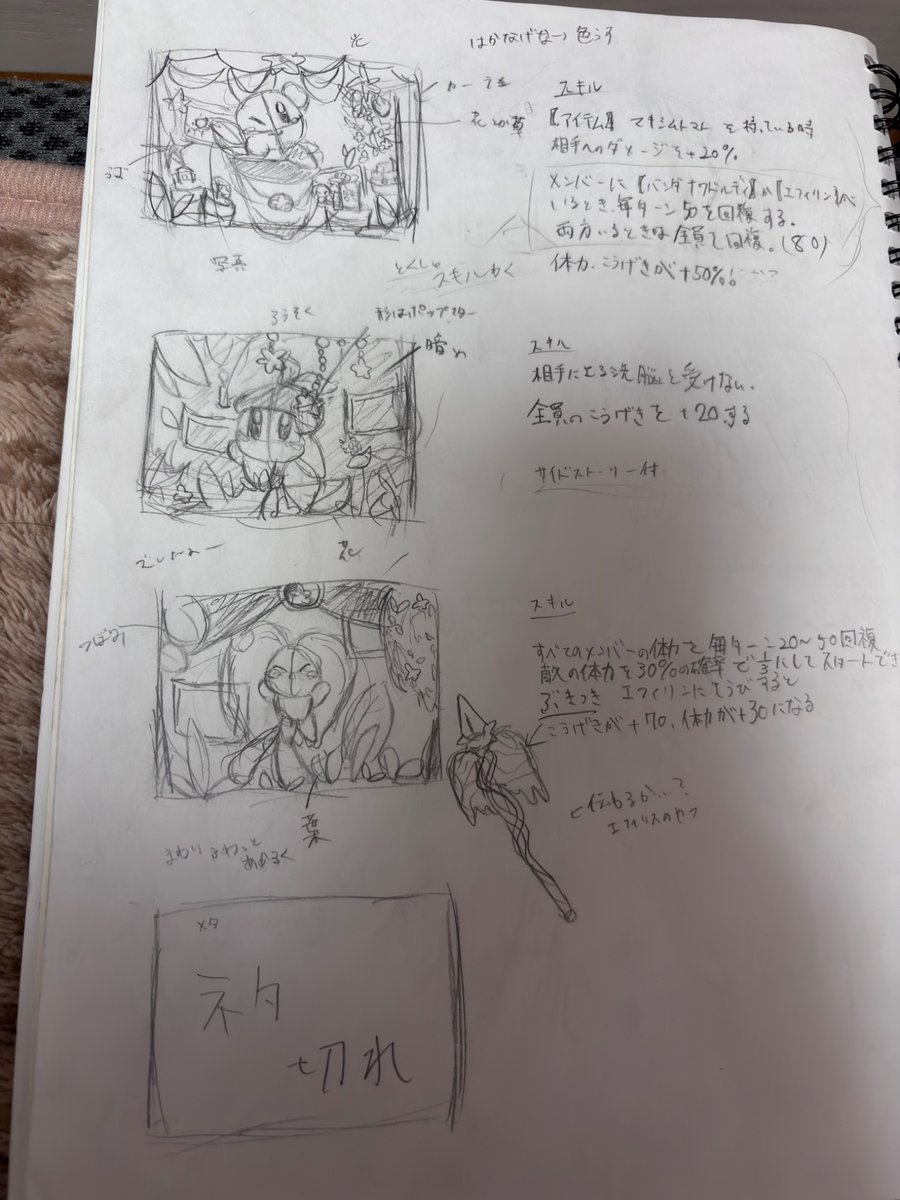 光
はかなげな 色う
カーテン
花とか草
写真
スキル
『アイテム』 マキシムトマト を持っている時
相手へのダメージを+20%
メンバーに『バンダナワドルディ』か『エフィリン』が
いるとき、毎ターン50を回複する。
両方いるときは全員を回複。(80)
とくしゅ
スキルわく
体力、こうげきが+50%
ろうそく
形はポップスター
暗め
スキル
相手による洗脳を受けない.
全員のこうげきを+20する
サイドストーリー付
花
つぼみ
葉
まわり ふわっと
あかるく
スキル
すべてのメンバーの体力を毎ターン20〜50回複
敵の体力を30%の確率で1/3にしてスタートでき
ぶきつき エフィリンにそうびすると
こうげきが+70、体力が+30になる
エフィリスのヤツ
メタ
ネタ
切れ